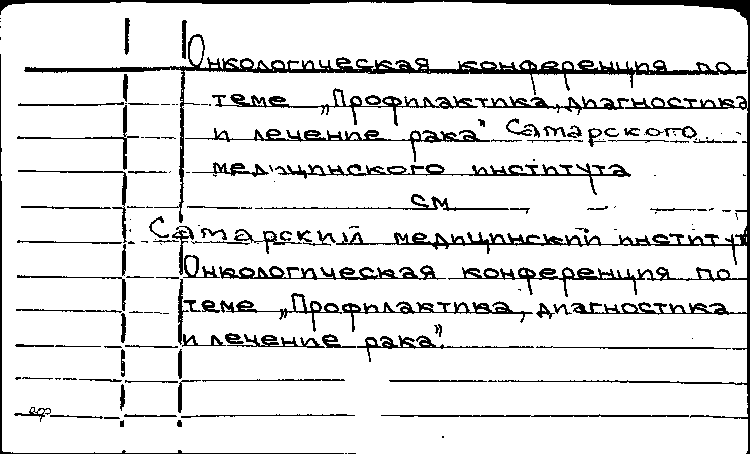 Онкологическая конференция по
теме „Профилактика, диагностика
и лечение рака" Самарского
медицинского института
см
Самарский медицинский институт
Онкологическая конференция по
теме „Профилактика, диагностика
и лечение рака".